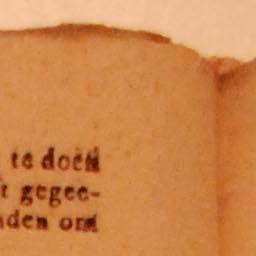 te doen
t gegee-
nden om